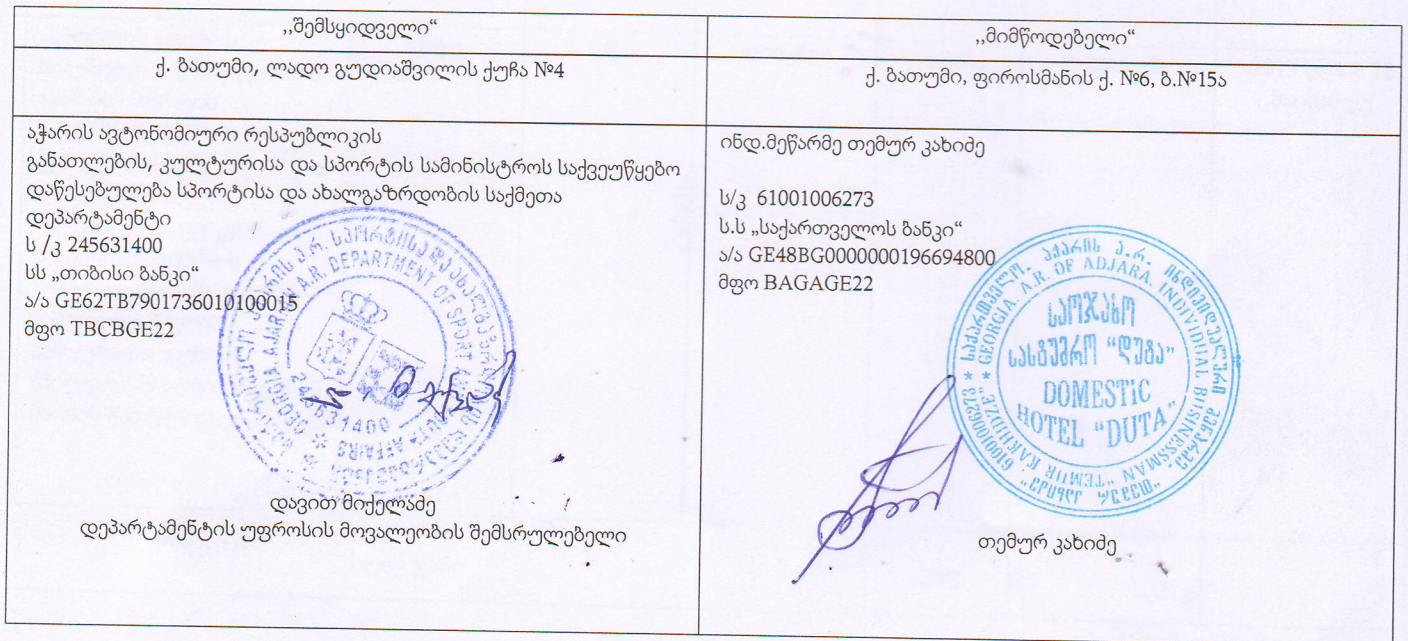 „შემსყიდველი“
„მიმწოდებელი“
ქ. ბათუმი, ლადო გუდიაშვილის ქუჩა №4
ქ. ბათუმი, ფიროსმანის ქ. №6, ბ.№15ა
აჭარის ავტონომიური რესპუბლიკის
განათლების, კულტურისა და სპორტის სამინისტროს საქვეუწყებო
დაწესებულება სპორტისა და ახალგაზრდობის საქმეთა
დეპარტამენტი
ს /კ 245631400
სს „თიბისი ბანკი“
ა/ა GE62TB7901736010100015
მფო TBCBGE22
დავით მიქელაძე
დეპარტამენტის უფროსის მოვალეობის შემსრულებელი
ინდ.მეწარმე თემურ კახიძე
ს/კ 61001006273
ს.ს „საქართველოს ბანკი“
ა/ა GE48BG0000000196694800
მფო BAGAGE22
საქართველო. აჭარის ა.რ. ინდივიდუალური მეწარმე "თემურ კახიძე" 61001006273
GEORGIA. A.R. OF ADJARA. INDIVIDUAL BUSINESSMAN "TEMUR KAKHIDZE"
საოჯახო
სასტუმრო "დუტა"
DOMESTIC
HOTEL "DUTA"
თემურ კახიძე